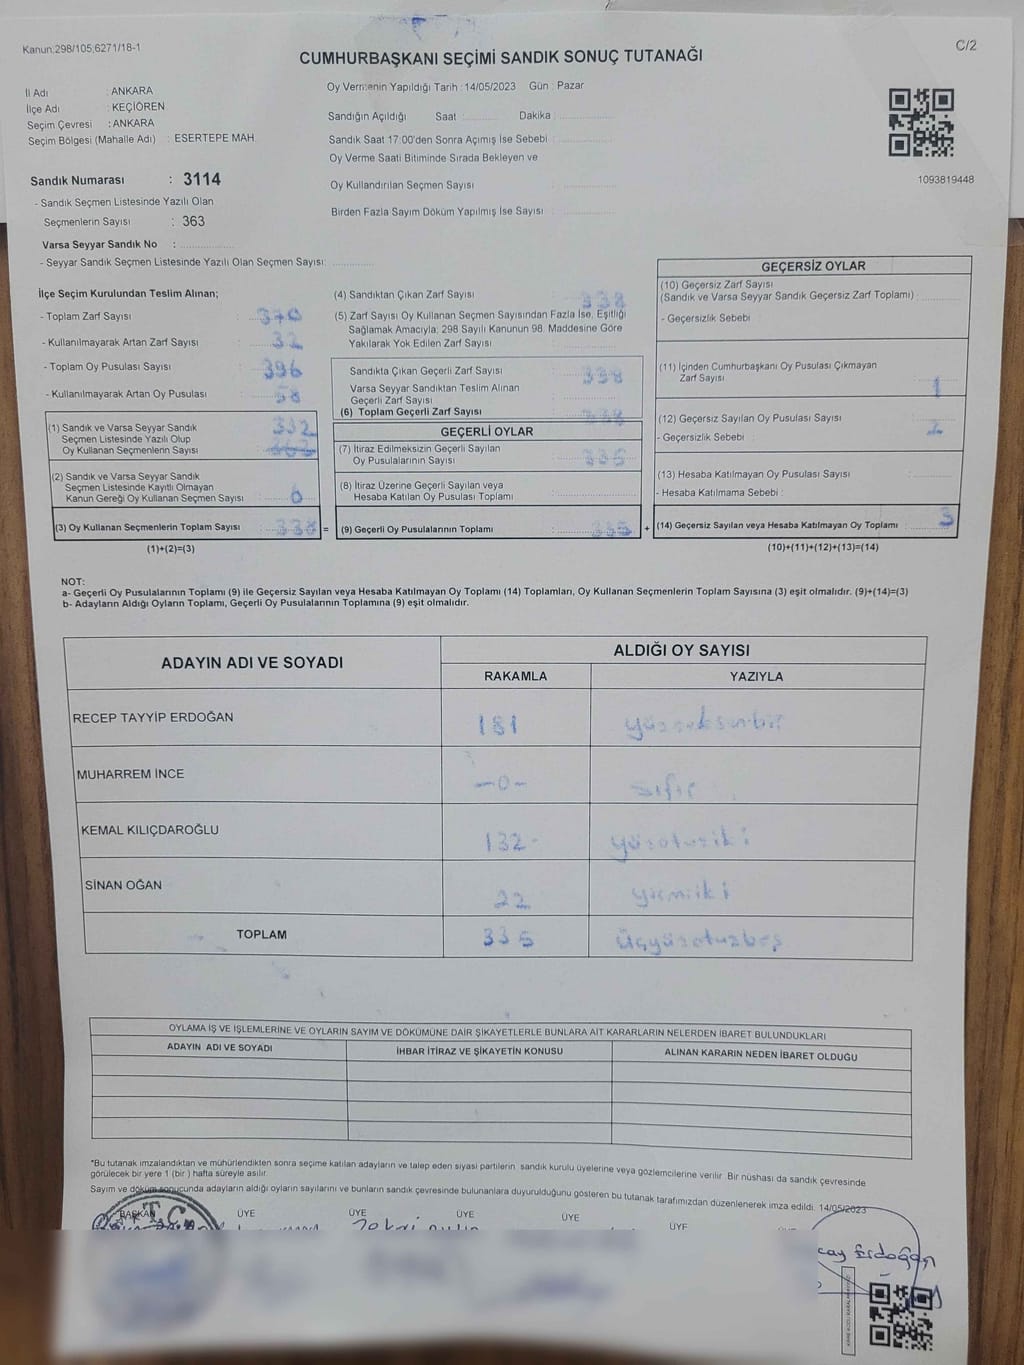 Kanun:298/105;6271/18-1
C/2
CUMHURBAŞKANI SEÇİMİ SANDIK SONUÇ TUTANAĞI
İl Adı : ANKARA
İlçe Adı : KEÇİÖREN
Seçim Çevresi : ANKARA
Seçim Bölgesi (Mahalle Adı) : ESERTEPE MAH
Sandık Numarası : 3114
- Sandık Seçmen Listesinde Yazılı Olan
Seçmenlerin Sayısı : 363
Varsa Seyyar Sandık No :
- Seyyar Sandık Seçmen Listesinde Yazılı Olan Seçmen Sayısı:
Oy Vermenin Yapıldığı Tarih :14/05/2023 Gün : Pazar
Sandığın Açıldığı Saat Dakika :
Sandık Saat 17:00'den Sonra Açımış İse Sebebi :
Oy Verme Saati Bitiminde Sırada Bekleyen ve
Oy Kullandırılan Seçmen Sayısı :
Birden Fazla Sayım Döküm Yapılmış İse Sayısı :
1093819448
İlçe Seçim Kurulundan Teslim Alınan;
- Toplam Zarf Sayısı : 370
- Kullanılmayarak Artan Zarf Sayısı : 32
- Toplam Oy Pusulası Sayısı : 396
- Kullanılmayarak Artan Oy Pusulası : 58
(1) Sandık ve Varsa Seyyar Sandık
Seçmen Listesinde Yazılı Olup
Oy Kullanan Seçmenlerin Sayısı : 332
(2) Sandık ve Varsa Seyyar Sandık
Seçmen Listesinde Kayıtlı Olmayan
Kanun Gereği Oy Kullanan Seçmen Sayısı : 6
(3) Oy Kullanan Seçmenlerin Toplam Sayısı : 338 =
(1)+(2)=(3)
(4) Sandıktan Çıkan Zarf Sayısı : 338
(5) Zarf Sayısı Oy Kullanan Seçmen Sayısından Fazla İse, Eşitliği
Sağlamak Amacıyla; 298 Sayılı Kanunun 98. Maddesine Göre
Yakılarak Yok Edilen Zarf Sayısı :
Sandıkta Çıkan Geçerli Zarf Sayısı : 338
Varsa Seyyar Sandıktan Teslim Alınan
Geçerli Zarf Sayısı :
(6) Toplam Geçerli Zarf Sayısı : 338
GEÇERLİ OYLAR
(7) İtiraz Edilmeksizin Geçerli Sayılan
Oy Pusulalarının Sayısı : 335
(8) İtiraz Üzerine Geçerli Sayılan veya
Hesaba Katılan Oy Pusulası Toplamı :
(9) Geçerli Oy Pusulalarının Toplamı : 335 +
GEÇERSİZ OYLAR
(10) Geçersiz Zarf Sayısı
(Sandık ve Varsa Seyyar Sandık Geçersiz Zarf Toplamı) :
- Geçersizlik Sebebi :
(11) İçinden Cumhurbaşkanı Oy Pusulası Çıkmayan
Zarf Sayısı : 1
(12) Geçersiz Sayılan Oy Pusulası Sayısı : 2
- Geçersizlik Sebebi :
(13) Hesaba Katılmayan Oy Pusulası Sayısı :
- Hesaba Katılmama Sebebi :
(14) Geçersiz Sayılan veya Hesaba Katılmayan Oy Toplamı : 3
(10)+(11)+(12)+(13)=(14)
NOT:
a- Geçerli Oy Pusulalarının Toplamı (9) ile Geçersiz Sayılan veya Hesaba Katılmayan Oy Toplamı (14) Toplamları, Oy Kullanan Seçmenlerin Toplam Sayısına (3) eşit olmalıdır. (9)+(14)=(3)
b- Adayların Aldığı Oyların Toplamı, Geçerli Oy Pusulalarının Toplamına (9) eşit olmalıdır.
ADAYIN ADI VE SOYADI
ALDIĞI OY SAYISI
RAKAMLA YAZIYLA
RECEP TAYYİP ERDOĞAN 181 yüzseksenbir
MUHARREM İNCE -0- sıfır
KEMAL KILIÇDAROĞLU 132- yüzotuziki
SİNAN OĞAN 22 yirmiiki
TOPLAM 335 üçyüzotuzbeş
OYLAMA İŞ VE İŞLEMLERİNE VE OYLARIN SAYIM VE DÖKÜMÜNE DAİR ŞİKAYETLERLE BUNLARA AİT KARARLARIN NELERDEN İBARET BULUNDUKLARI
ADAYIN ADI VE SOYADI İHBAR İTİRAZ VE ŞİKAYETİN KONUSU ALINAN KARARIN NEDEN İBARET OLDUĞU
*Bu tutanak imzalandıktan ve mühürlendikten sonra seçime katılan adayların ve talep eden siyasi partilerin sandık kurulu üyelerine veya gözlemcilerine verilir. Bir nüshası da sandık çevresinde
görülecek bir yere 1 (bir ) hafta süreyle asılır.
Sayım ve döküm sonucunda adayların aldığı oyların sayılarını ve bunların sandık çevresinde bulunanlara duyurulduğunu gösteren bu tutanak tarafımızdan düzenlenerek imza edildi. 14/05/2023
BAŞKAN ÜYE ÜYE ÜYE ÜYE ÜYE
T.C.
Erdoğan